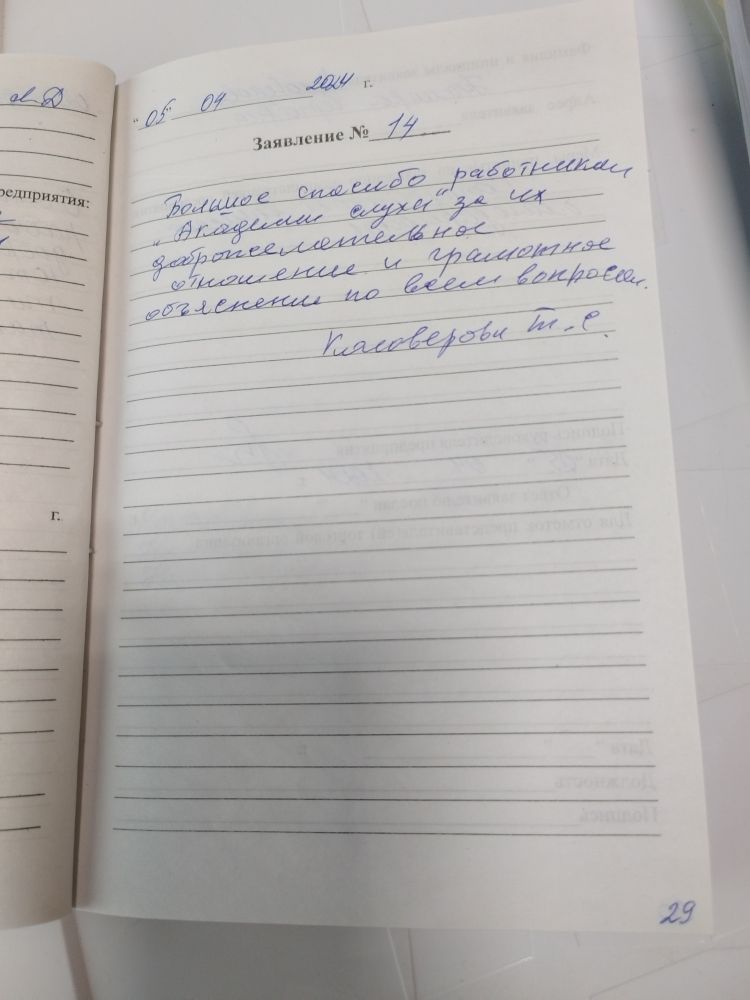 "05" 04 2024 г.
Заявление № 14
Большое спасибо работникам
„Академии слуха" за их
доброжелательное
отношение и грамотное
объяснение по всем вопросам.
Т.С.
редприятия:
г.
29